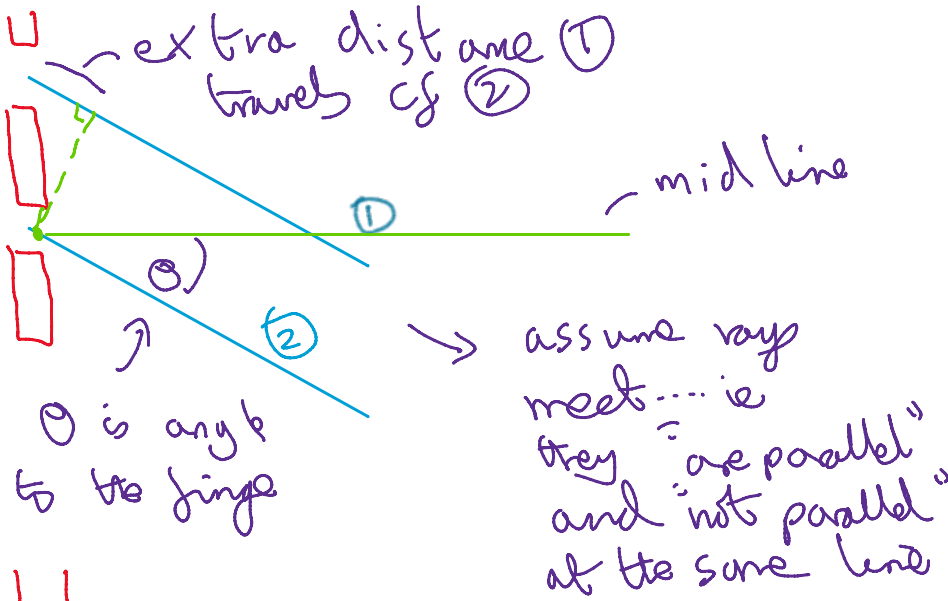 extra distane ①
travels cf ②
mid line
①
θ
②
θ is angle
to the finge
assume rays
meet .... ie
they "are parallel"
and "not parallel"
at the same line